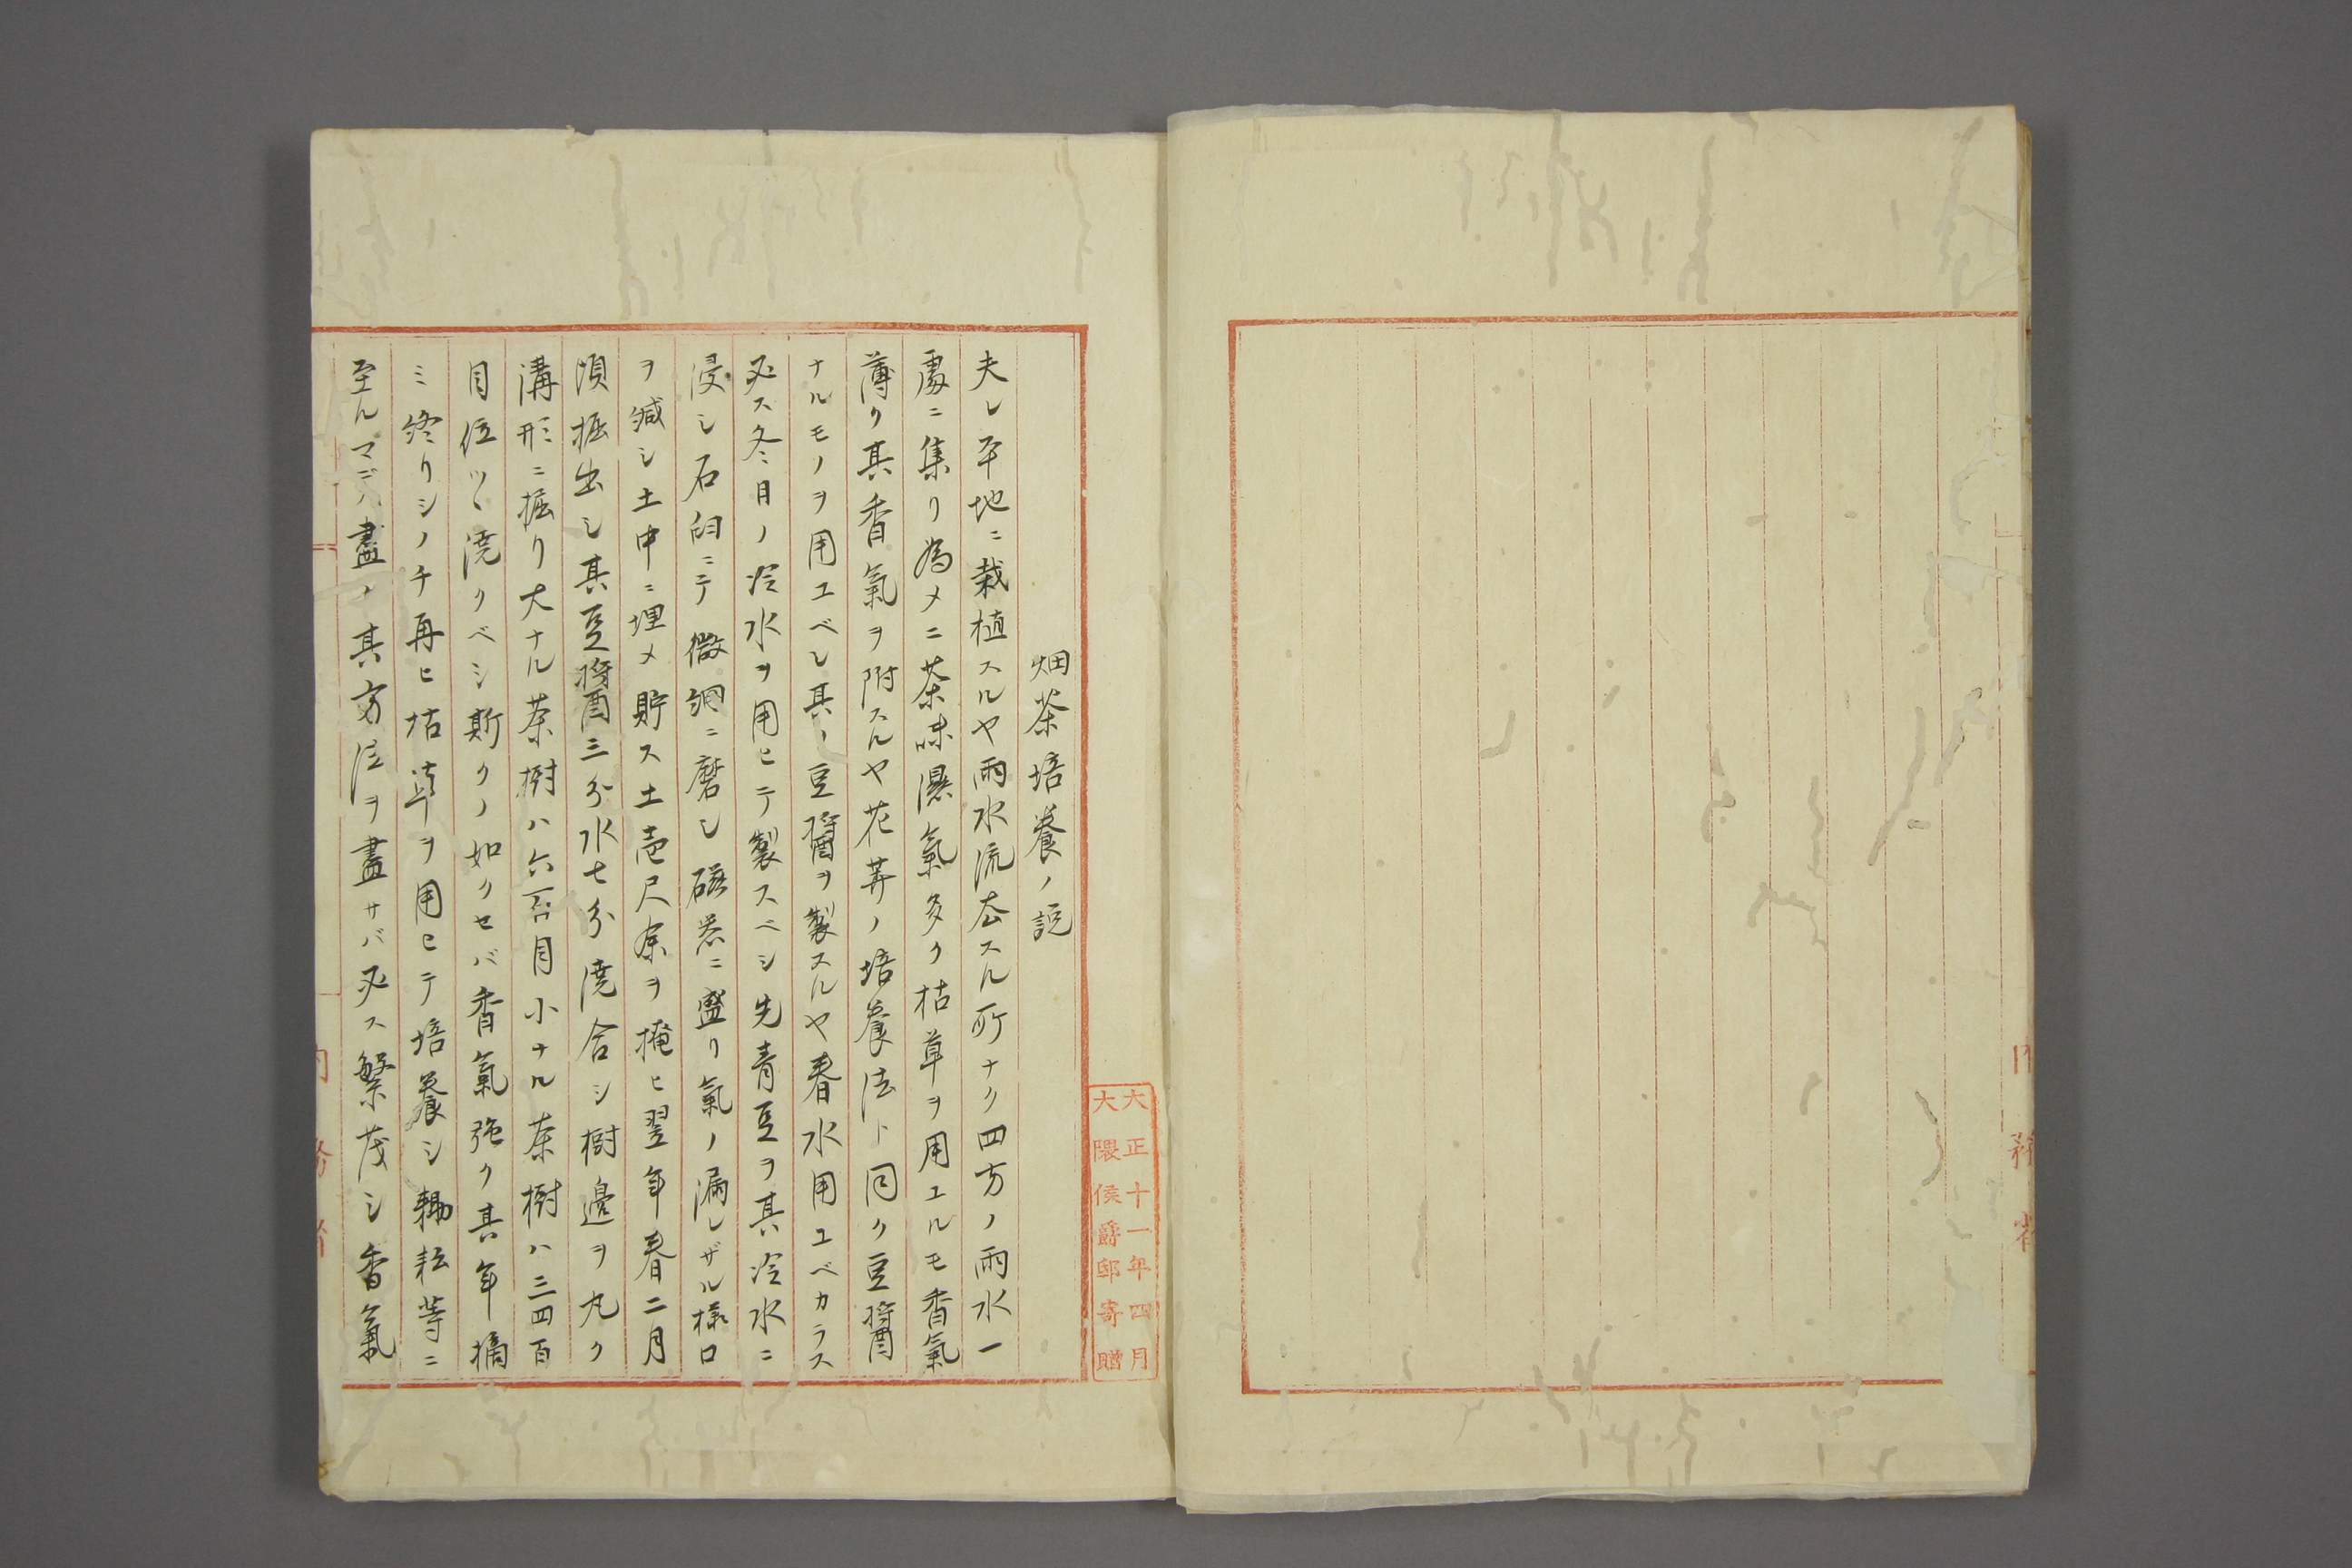 畑茶培養ノ説
夫レ平地ニ栽植スルヤ雨水流去スル所ナク四方ノ雨水一
處ニ集リ為メニ茶味濕氣多ク枯草ヲ用ユルモ香氣
薄ク其香氣ヲ附スルヤ花卉ノ培養法ト同ク豆醬
ナルモノヲ用ユベシ其ノ豆醬ヲ製スルヤ春水用ユベカラス
必ス冬日ノ冷水ヲ用ヒテ製スベシ先青豆ヲ其冷水ニ
浸シ石臼ニテ微細ニ磨シ磁器ニ盛リ氣ノ漏レザル様口
ヲ緘シ土中ニ埋メ貯ス土壱尺余ヲ掩ヒ翌年春二月
頃掘出シ其豆醬三分水七分澆合シ樹邊ヲ丸ク
溝形ニ掘リ大ナル茶樹ハ六百目小ナル茶樹ハ三四百
目位ツヽ澆クベシ斯クノ如クセバ香氣強ク其年摘
ミ終リシノチ再ヒ枯草ヲ用ヒテ培養シ耡耘等ニ
至ルマデハ盡ク其方法ヲ盡サバ必ス繁茂シ香氣
大正十一年四月
大隈侯爵邸寄贈
内務省